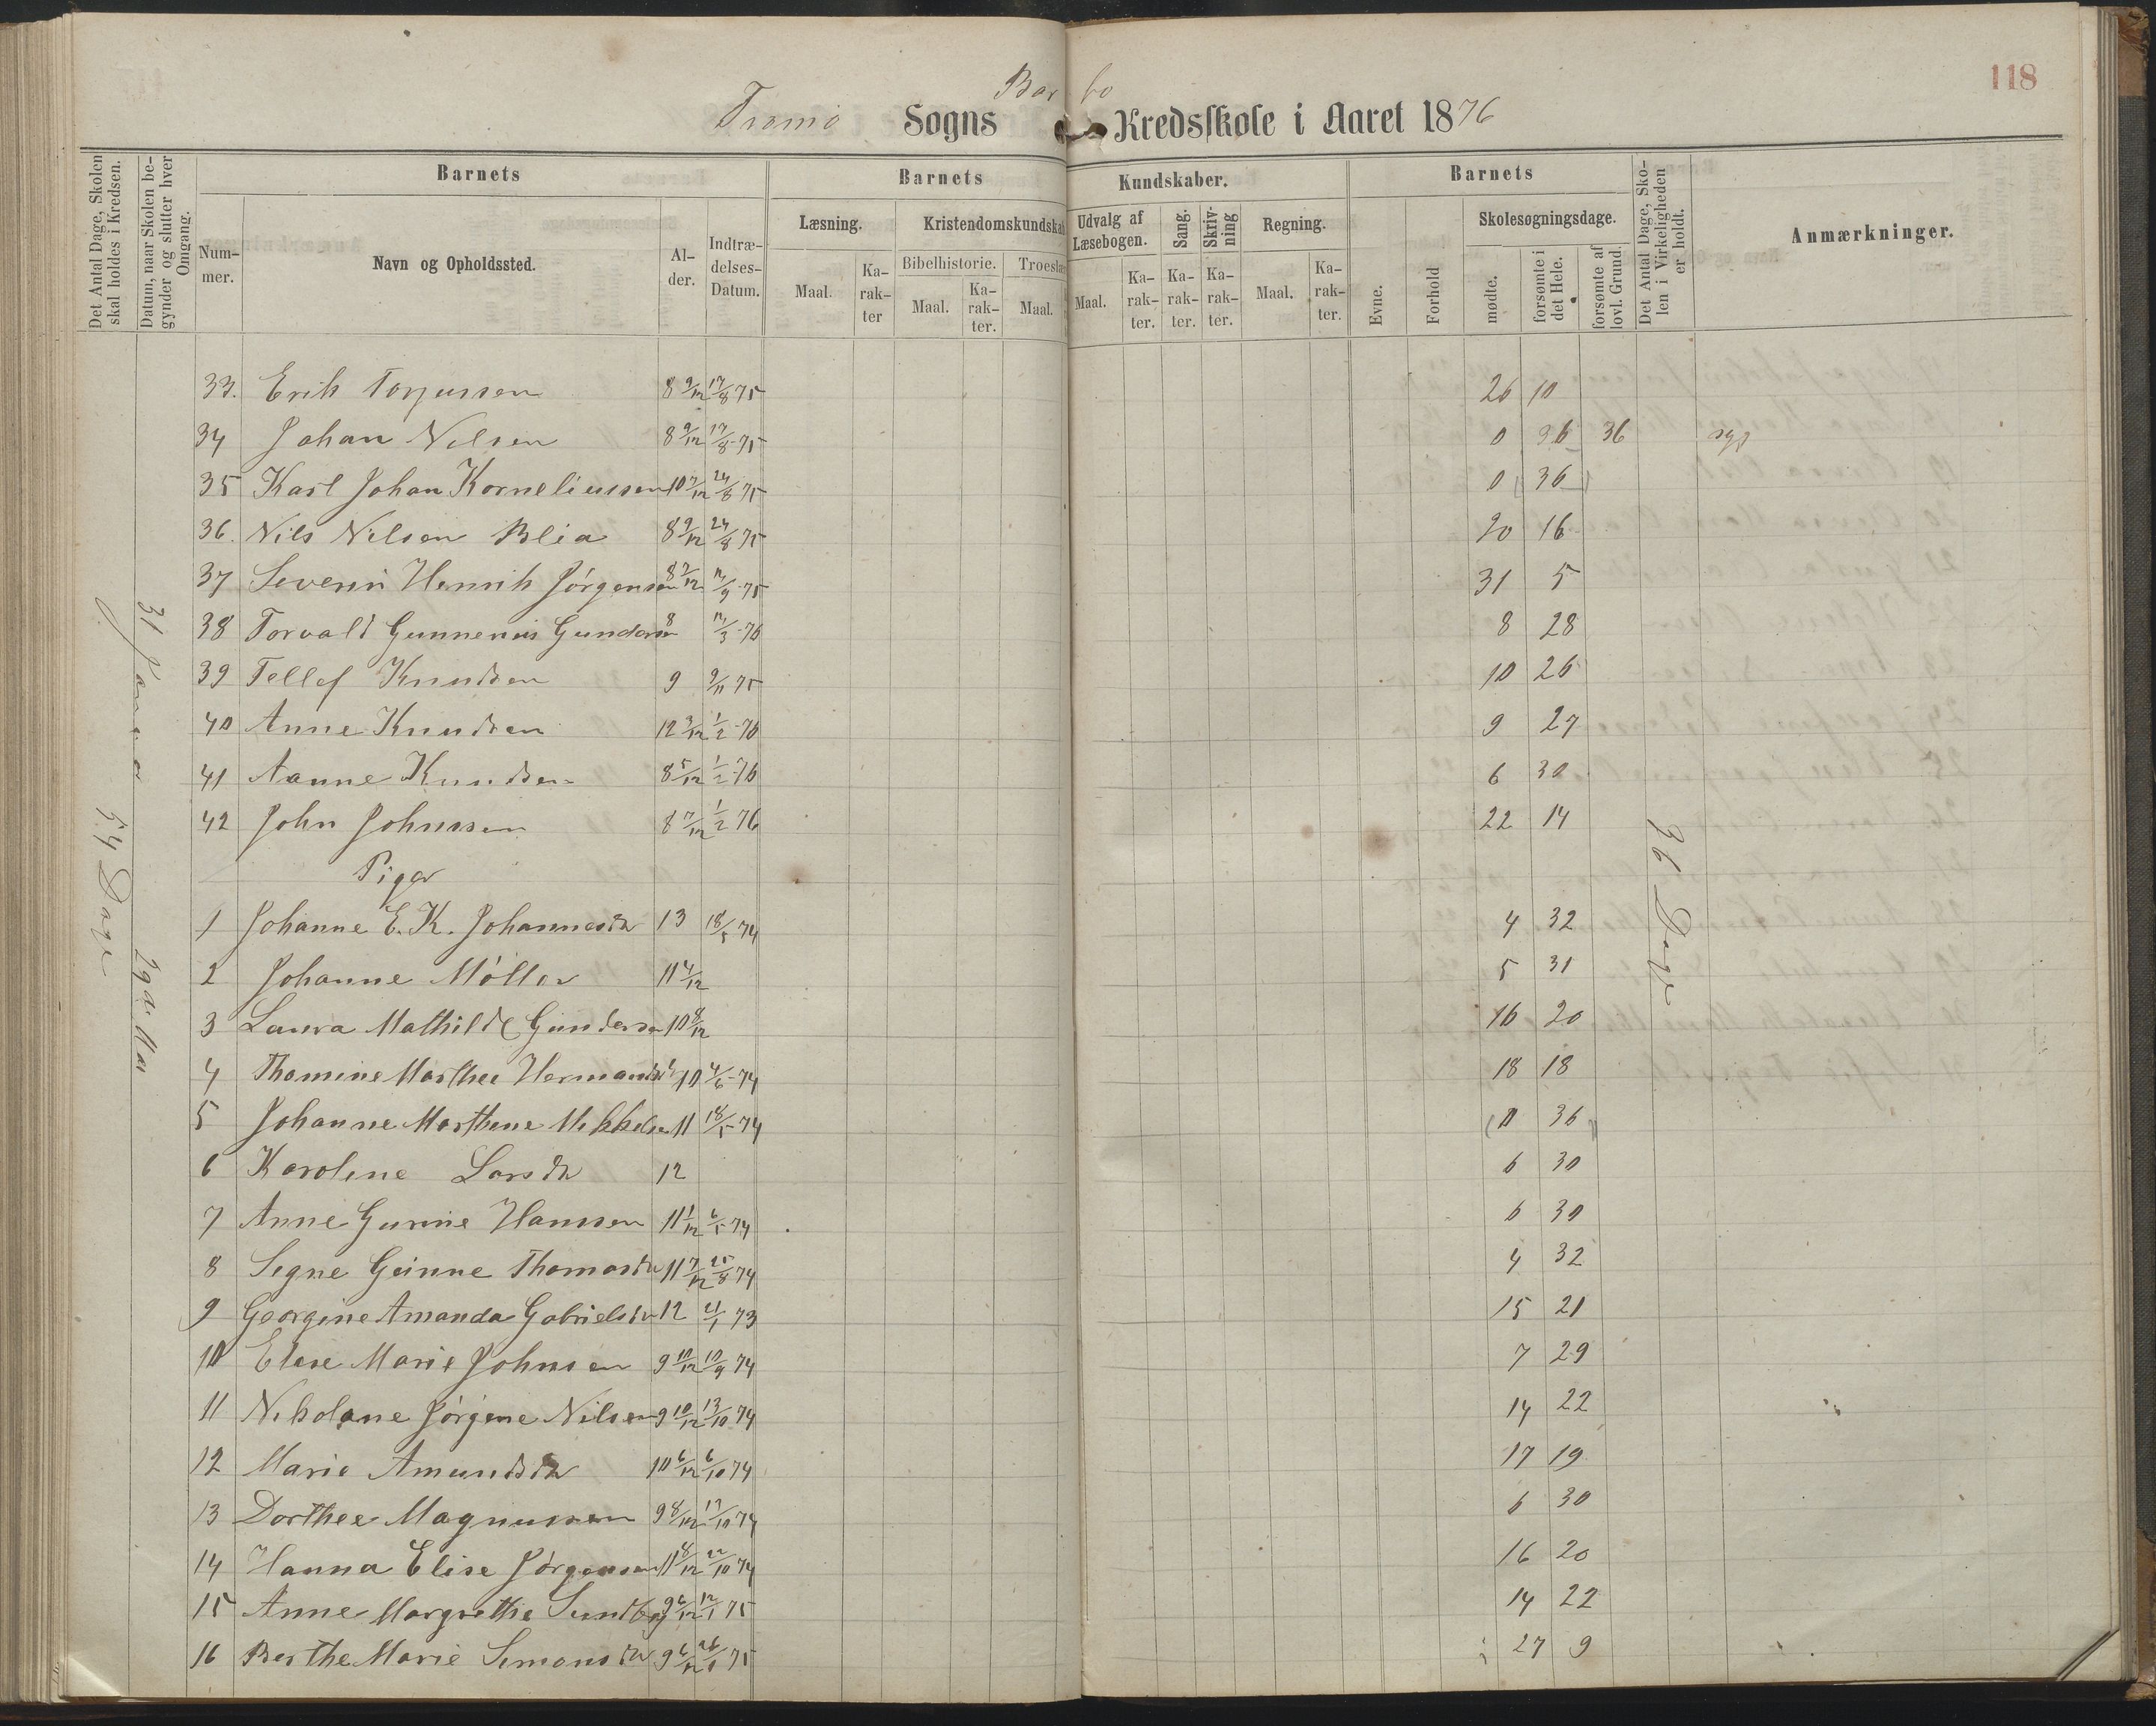 118
Barbo
Tromö Sogns Kredsskole i Aaret 1876
Det Antal Dage, Skolen skal holdes i Kredsen.
Datum, naar Skolen begynder og slutter hver Omgang.
Barnets
Barnets
Kundskaber.
Barnets
Det Antal Dage, Skolen i Virkeligheden er holdt.
Anmærkninger.
Nummer.
Navn og Opholdssted.
Alder.
Indtrædelses-Datum.
Læsning.
Kristendomskundskab
Udvalg af Læsebogen.
Sang.
Skrivning
Regning.
Skolesøgningsdage.
Maal.
Karakter
Bibelhistorie.
Troeslære
Maal.
Karakter.
Maal.
Maal.
Karakter.
Karakter.
Karakter.
Maal.
Karakter.
Evne.
Forhold
mødte.
forsømte i det Hele.
forsømte af lovl. Grund.
54 Dage
31 Januar
29de Mai
36 Dage
33. Erik Torjussen 8 9/12 17/8 75 26 10
34 Johan Nilsen 8 9/12 17/8-75 0 36 36 syg
35 Karl Johan Korneliussen 10 7/12 24/8 75 0 36
36. Nils Nilsen Blia 8 9/12 24/8 75 20 16
37 Severin Henrik Jörgensen 8 7/12 /9-75 31 5
38 Torvald Gunnerius Gunders 8 /3-76 8 28
39 Tellef Knudsen 9 9/11 75 10 26
40 Anne Knudsen 12 3/12 1/2-76 9 27
41 Nanne Knudsen 8 5/12 1/2-76 6 30
42 John Johnssen 8 7/12 1/2 76 22 14
Piger
1 Johanne E. K. Johannesdtr 13 18/5 74 4 32
2 Johanne Möller 11 4/12 5 31
3 Laura Mathilde Gundersen 10 8/12 16 20
4 Thomine Marthea Hermansdtr 10 4/6-74 18 18
5 Johanne Marthine Mikkelsen 11 18/5 74 (0 36)
6 Karoline Larsdtr 12 6 30
7 Anne Gurine Hanssen 11 1/12 6/5 74 6 30
8 Segne Geinne Thomasdtr 11 7/12 25/8 74 4 32
9 Georgine Amanda Gabrielsdtr 12 21/1 73 15 21
10 Elese Marie Johnsen 9 10/12 10/9 74 7 29
11 Nikolane Jörgine Nilsen 9 10/12 13/10 74 14 22
12 Marie Amundsdtr 10 6/12 6/10 74 17 19
13 Dorthea Magnussen 9 8/12 17/10 74 6 30
14 Hanna Elise Jörgensen 11 8/12 22/10 74 16 20
15 Anne Margrethe Sundby 9 6/12 12/1 75 14 22
16 Berthe Marie Simonsdtr 9 6/12 26/1 75 27 9